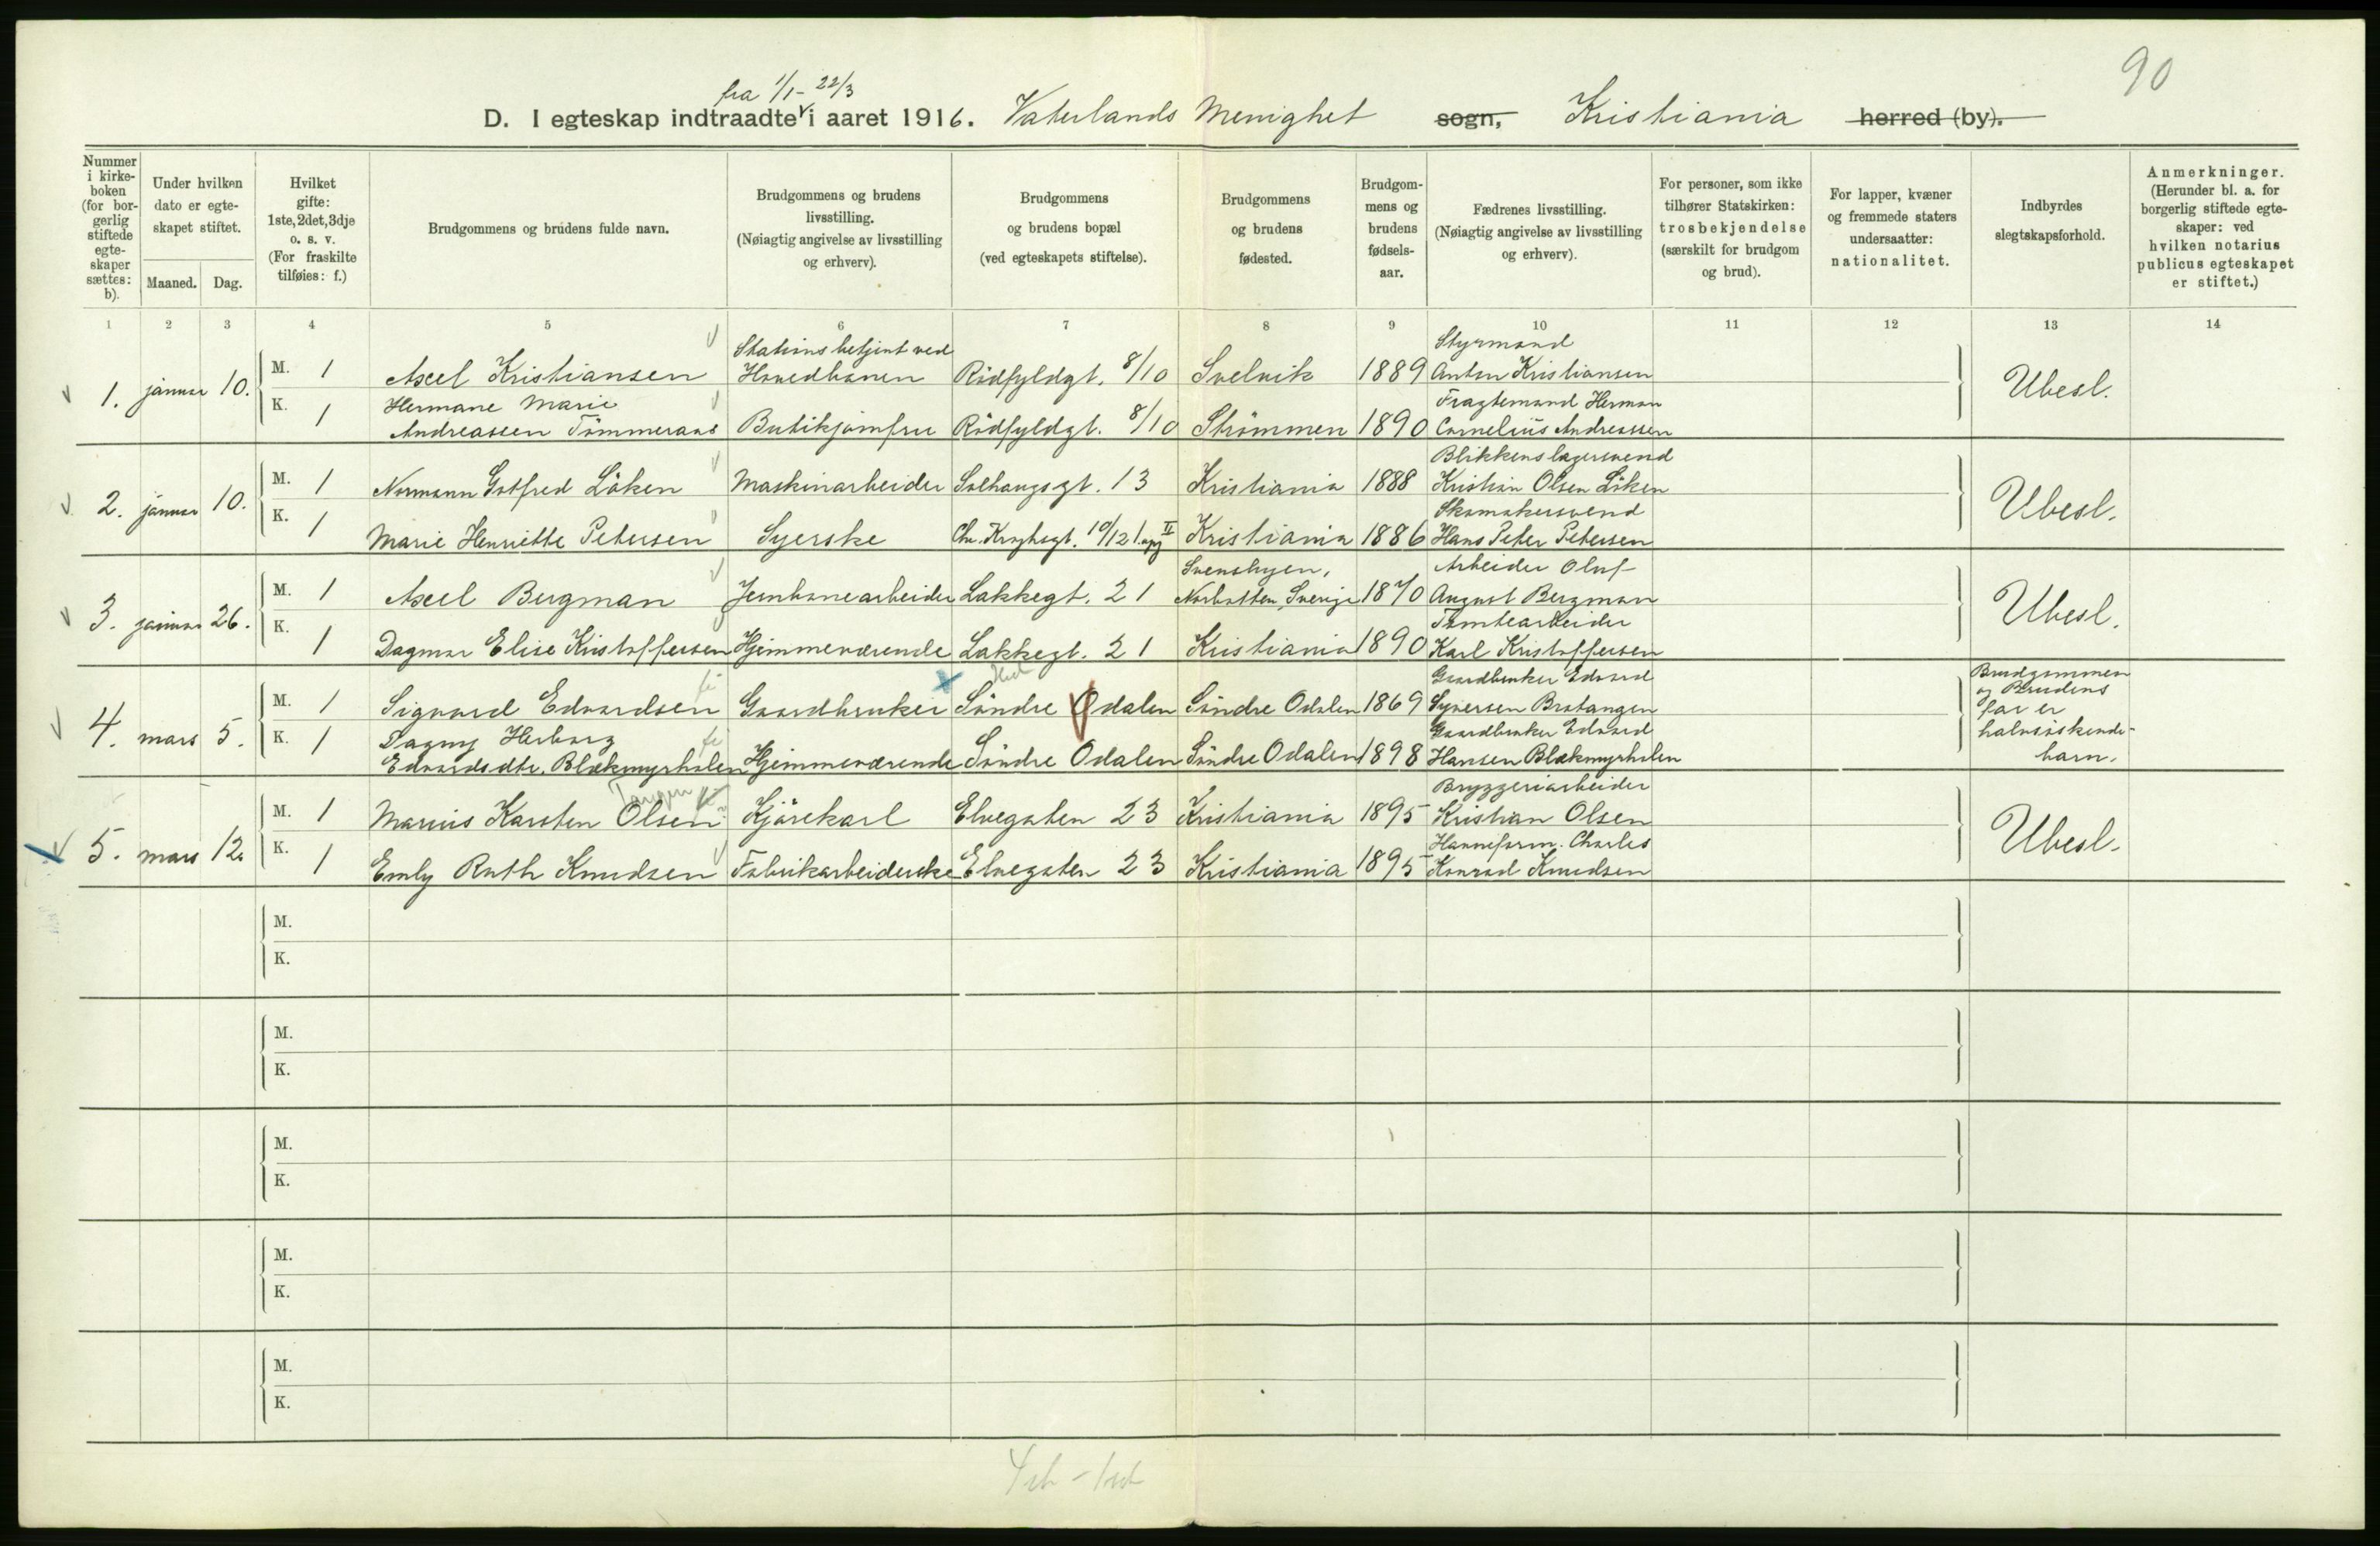 90
fra 1/1 - 22/3
D. I egteskap indtraadte i aaret 1916. Vaterlands Menighet sogn, Kristiania herred (by).
Nummer i kirkeboken (for borgerlig stiftede egteskaper sættes: b).
Under hvilken dato er egteskapet stiftet.
Maaned. Dag.
Hvilket gifte: 1ste, 2det, 3dje o. s. v. (For fraskilte tilføies: f.)
Brudgommens og brudens fulde navn.
Brudgommens og brudens livsstilling. (Nøiagtig angivelse av livsstilling og erhverv).
Brudgommens og brudens bopæl (ved egteskapets stiftelse).
Brudgommens og brudens fødested.
Brudgommens og brudens fødselsaar.
Fædrenes livsstilling. (Nøiagtig angivelse av livsstilling og erhverv).
For personer, som ikke tilhører Statskirken: trosbekjendelse (særskilt for brudgom og brud).
For lapper, kvæner og fremmede staters undersaatter: nationalitet.
Indbyrdes slegtskapsforhold.
Anmerkninger. (Herunder bl. a. for borgerlig stiftede egteskaper: ved hvilken notarius publicus egteskapet er stiftet.)
1 2 3 4 5 6 7 8 9 10 11 12 13 14
Stationsbetjent ved Styrmand
1. januar 10. M. 1 Axel Kristiansen Hovedbanen Rödfyldgt. 8/10 Svelvik 1889 Anton Kristiansen Ubesl.
Hermane Marie Fragtemand Herman
K. 1 Andreassen Tömmeraas Butikjomfru Rödfyldgt. 8/10 Strömmen 1890 Cornelius Andreassen
Blikkenslagersvend
2. januar 10. M. 1 Normann Gotfred Löken Maskinarbeider Solhaugsgt. 13 Kristiania 1888 Kristian Olsen Löken Ubesl.
Skomakersvend
K. 1 Marie Henriette Petersen Syerske Chr. Kroghsgt. 10/12 1. opg II Kristiania 1886 Hans Peter Petersen
Svensbyen, Arbeider Oluf
3. januar 26. M. 1 Axel Bergman Jernbanearbeider Lakkegt. 21 Norbotten, Sverige 1870 August Bergman Ubesl.
Tomtearbeider
K. 1 Dagmar Elise Kristoffersen Hjemmeværende Lakkegt. 21 Kristiania 1890 Karl Kristoffersen
Gaardbruker Edvard
4. mars 5. M. 1 Sigvard Edvardsen Gaardbruker Söndre Odalen Söndre Odalen 1869 Syversen Bratangen
Brudgommen og Brudens far er halvsöskendebarn.
Dagny Herborg Gaardbruker Edvard
K. 1 Edvardsdtr. Blækmyrholen Hjemmeværende Söndre Odalen Söndre Odalen 1898 Hansen Blækmyrholen
Tangen Bryggeriarbeider
5. mars 12. M. 1 Marius Karsten Olsen Kjörekarl Elvegaten 23 Kristiania 1895 Kristian Olsen Ubesl.
Charles
K. 1 Emly Ruth Knudsen Fabrikarbeiderske Elvegaten 23 Kristiania 1895 Konrad Knudsen
M.
K.
M.
K.
M.
K.
M.
K.
M.
K.